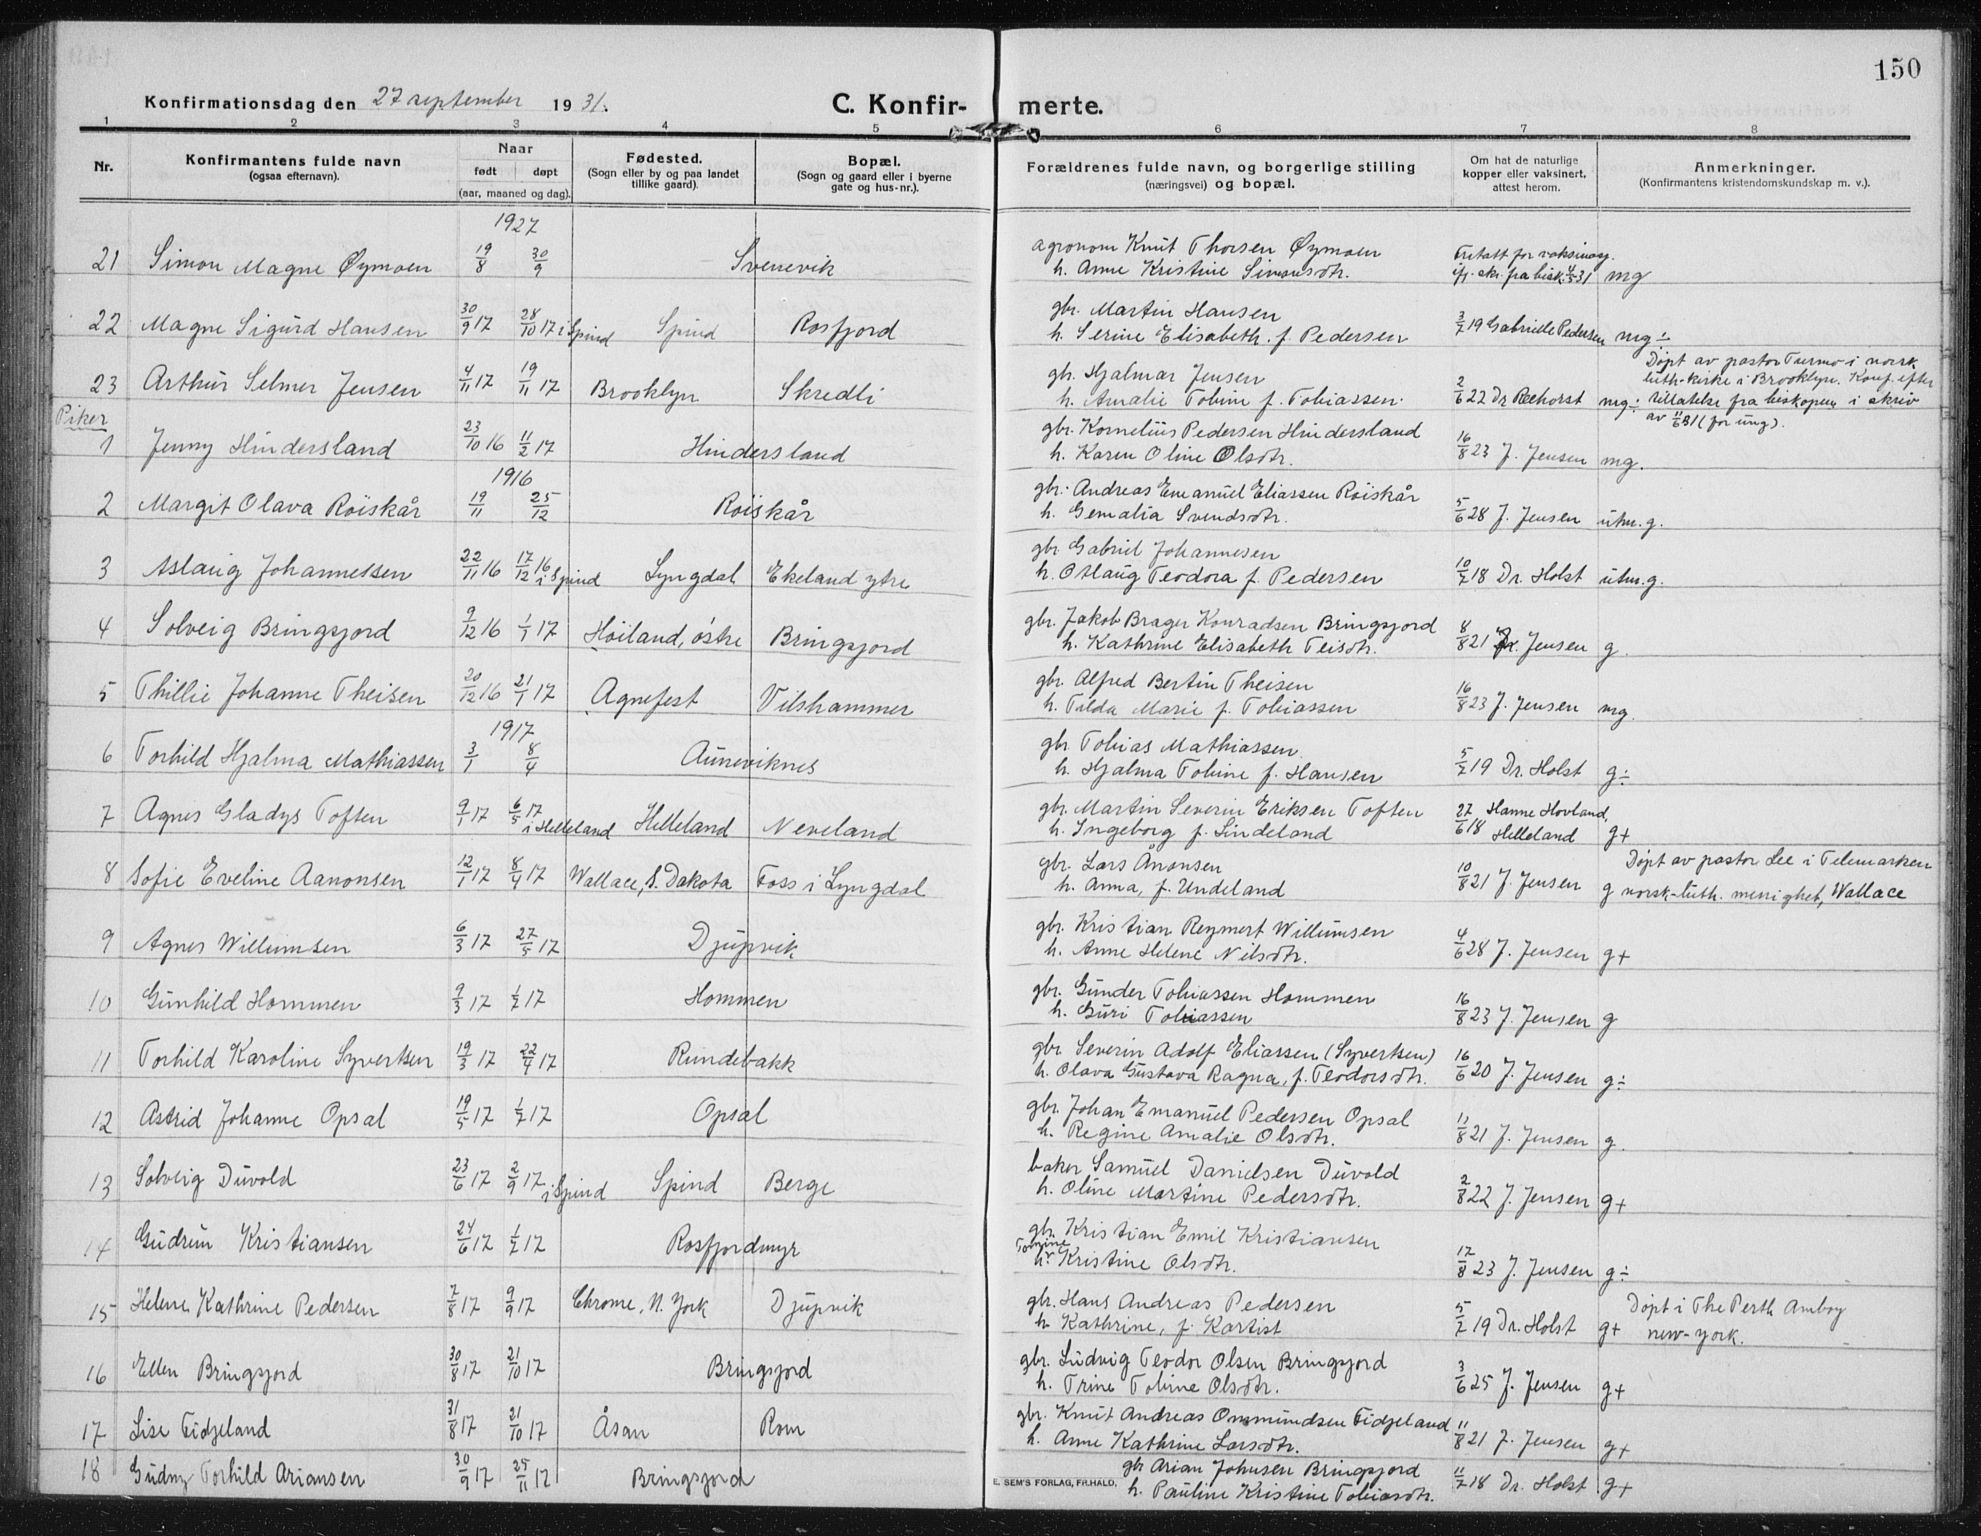 150
Konfirmationsdag den 27 september 1931.
C. Konfirmerte.
1 2 3 4 5 6 7 8
Nr.
Konfirmantens fulde navn
(ogsaa efternavn).
Naar
født døpt
(aar, maaned og dag).
Fødested.
(Sogn eller by og paa landet
tillike gaard).
Bopæl.
(Sogn og gaard eller i byerne
gate og hus-nr.).
Forældrenes fulde navn, og borgerlige stilling
(næringsvei) og bopæl.
Om hat de naturlige
kopper eller vaksinert,
attest herom.
Anmerkninger.
(Konfirmantens kristendomskundskap m. v.).
1927
21 Simon Magne Øymoen 19/8 30/9 Svenevik agronom Knut Thorsen Øymoen
h. Anne Kristine Simonsdtr. Fritatt for vaksinasj.
ifl. skr. fra bisk. 4/5 31 mg
22 Magne Sigurd Hansen 30/9 17 28/10 17 i Spind Spind Rosfjord gbr. Martin Hansen
h. Serine Elisabeth f. Pedersen 3/7 19 Gabrielle Pedersen mg÷
23 Arthur Selmer Jensen 4/11 17 19/11 17 Brooklyn Skredli gb. Hjalmar Jensen
h. Amalie Tobine f. Tobiassen. 2/6 22 Dr Reehorst mg÷ Døpt av pastor Turmo i norsk
luth-kirke i Brooklyn. Konf. efter
tillatelse fra biskopen i skriv
av 11/6 31 (for ung).
Piker
1 Jenny Hindersland 23/10 16 11/2 17 Hindersland gbr. Kornelius Pedersen Hindersland
h. Karen Oline Olsdtr. 16/8 23 J. Jensen mg.
1916
2 Margit Olava Röiskår 19/11 25/12 Röiskår gbr. Andreas Emanuel Eliassen Röiskår
h. Gemalia Svendsdtr. 5/6 28 J. Jensen utm.g.
3 Aslaug Johannessen 22/11 16 17/12 16 i Spind Lyngdal Ekeland ytre gbr. Gabriel Johannesen
h. Otlaug Teodora f. Pedersen 10/7 18 Dr. Holst utm.g.
4 Solveig Bringsjord 9/12 16 1/1 17 Höiland, östre Bringsjord gbr. Jakob Brager Konradsen Bringsjord
h. Kathrine Elisabeth Teisdtr. 8/8 21 J. Jensen g.
5 Thillie Johanne Theisen 20/12 16 21/1 17 Agnefest Vilshammer gbr. Alfred Bertin Theisen
h. Tilda Marie f. Tobiassen 16/8 23 J. Jensen mg.
1917
6 Torhild Hjalma Mathiassen 3/1 8/4 Auneviknes gbr. Tobias Mathiassen
h. Hjalma Tobine f. Hansen 5/7 19 Dr. Holst g÷
7 Agnes Gladys Toften 9/1 17 6/5 17 i Helleland Helleland Neveland gbr. Martin Severin Eriksen Toften
h. Ingeborg f. Lindeland 27/6 18 Hanne Hovland,
Helleland g+
8 Sofie Eveline Aanonsen 12/1 17 8/4 17 Wallace, S. Dakota Foss i Lyngdal gbr. Lars Ånonsen
h. Anna, f. Undeland 10/8 21 J. Jensen g Døpt av pastor Lee i Telemarken
norsk-luth. menighet, Wallace
9 Agnes Willumsen 6/3 17 27/5 17 Djupvik gbr. Kristian Reymert Willumsen
h. Anne Helene Nilsdtr. 4/6 28 J. Jensen g+
10 Gunhild Hommen 9/3 17 1/7 17 Hommen gbr. Gunder Tobiassen Hommen
h. Guri Tobiassen 16/8 23 J. Jensen g
11 Torhild Karoline Syvertsen 19/3 17 22/4 17 Rundebakk gbr. Severin Adolf Eliassen (Syvertsen)
h. Olava Gustava Ragna, f. Teodorsdtr. 16/6 20 J. Jensen g÷
12 Astrid Johanne Opsal 19/5 17 1/7 17 Opsal gbr. Johan Emanuel Pedersen Opsal
h. Regine Amalie Olsdtr. 11/8 21 J. Jensen g
13 Solveig Duvold 23/6 17 2/9 17 i Spind Spind Berge baker Samuel Danielsen Duvold
h. Oline Martine Pedersdtr. 2/8 22 J. Jensen g+
14 Gudrun Kristiansen 24/6 17 1/7 17 Rosfjordmyr gbr. Kristian Emil Kristiansen
h. Tomine Kristine Olsdtr. 17/8 23 J. Jensen g÷
15 Helene Kathrine Pedersen 7/8 17 9/9 17 Chrome, N. York Djupvik gbr. Hans Andreas Pedersen
h. Kathrine, f. Kartist 5/7 19 Dr. Holst g+ Døpt i The Perth Amboy
new-york.
16 Ellen Bringsjord 30/8 17 21/10 17 Bringsjord gbr. Ludvig Teodor Olsen Bringsjord
h. Trine Tobine Olsdtr. 3/6 25 J. Jensen g+
17 Lise Fidjeland 31/8 17 21/10 17 Åsan Rom gbr. Knut Andreas Ommundsen Fidjeland
h. Anne Kathrine Larsdtr. 11/8 21 J. Jensen g+
18 Gudny Torhild Ariansen 30/9 17 25/11 17 Bringsjord gbr Arian Johnsen Bringsjord
h. Pauline Kristine Tobiasdtr. 11/7 18 Dr. Holst g+
E. SEM'S FORLAG, FR.HALD.